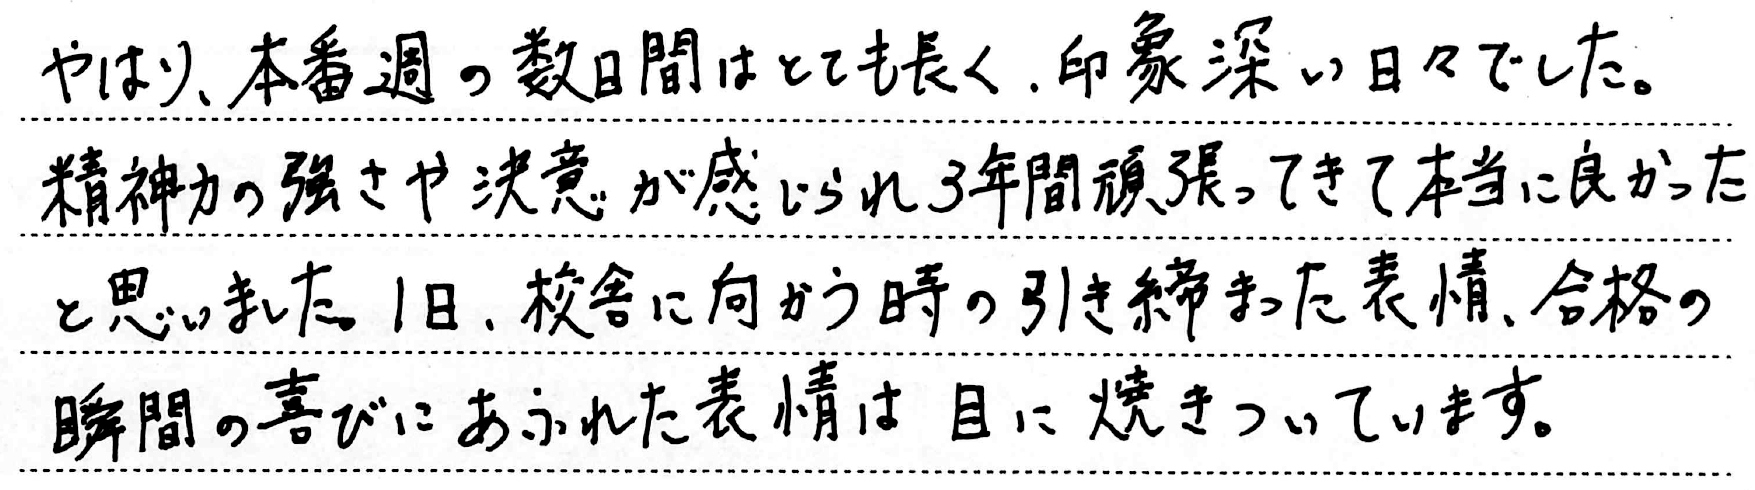 やはり、本番週の数日間はとても長く、印象深い日々でした。
精神力の強さや決意が感じられ3年間頑張ってきて本当に良かった
と思いました。1日、校舎に向かう時の引き締まった表情、合格の
瞬間の喜びにあふれた表情は目に焼きついています。